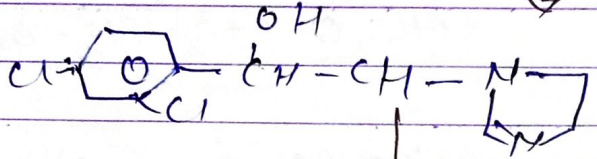 OH
Cl O CH - CH - N
Cl N